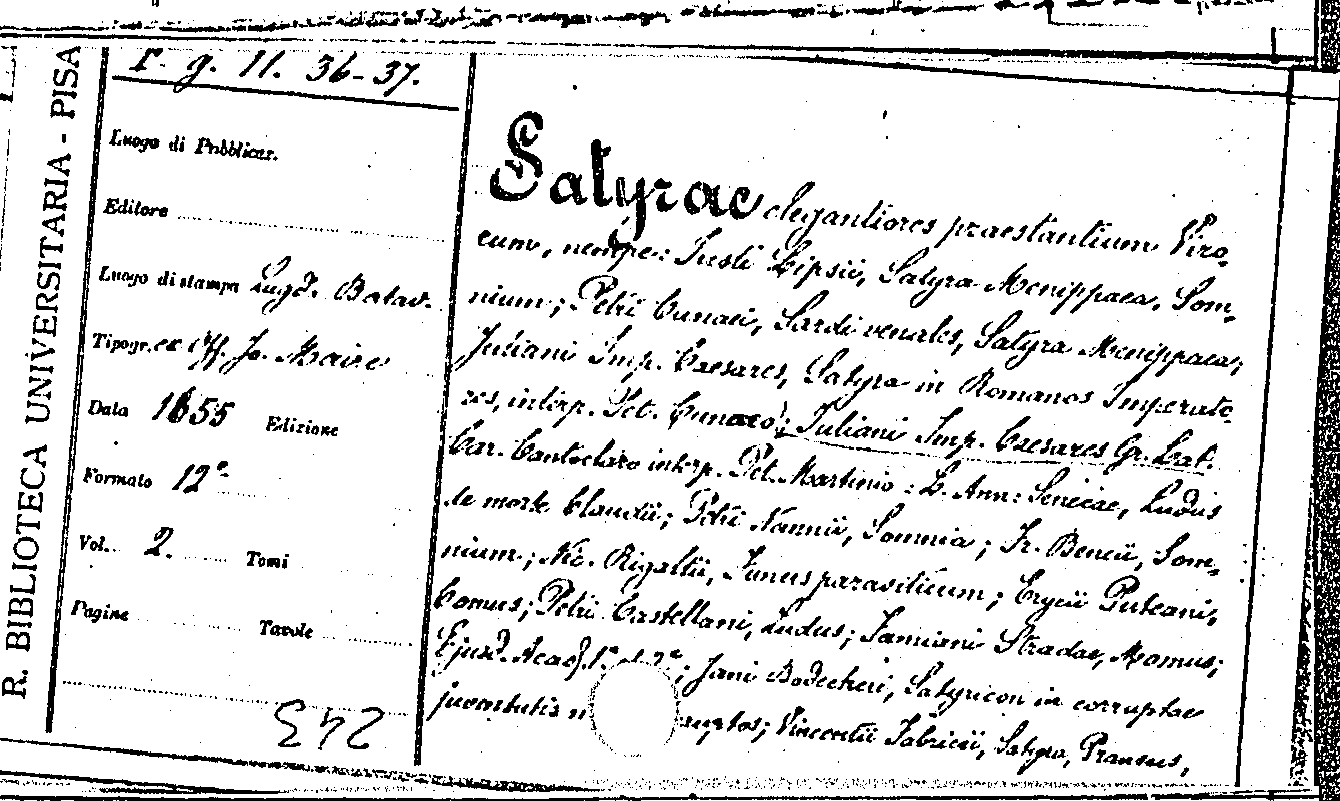 R. BIBLIOTECA UNIVERSITARIA - PISA
g. 11. 36-37.
Luogo di Pubblicaz.
Editore
Luogo di stampa Lugd. Batav.
Tipogr. ex off. Jo. Maire
Data 1655 Edizione
Formato 12°
Vol. 2. Tomi
Pagine Tavole
243
Satyrae elegantiores praestantium Viro-
rum, nempe: Justi Lipsii, Satyra Menippaea, Som-
nium; Petri Cunaei, Sardi venales, Satyra Menippaea;
Juliani Imp. Caesares, Satyra in Romanos Imperato-
res, interp. Pet. Cunaeo; Juliani Imp. Caesares Gr. Lat.
Car. Cantoclaro interp. Pet. Martinio: L. Ann: Senecae, Ludus
de morte Claudii; Petri Nannii, Somnia; Fr. Bencii, Som-
nium; Nic. Rigaltii, Funus parasiticum; Erycii Puteani,
Comus; Petri Castellani, Ludus; Famiani Stradae, Momus;
Ejusd. Acad. 1a et 2a; Jani Bodecheri, Satyricon in corruptae
juventutis m ruptos; Vincentii Fabricii, Satyra, Pransus,